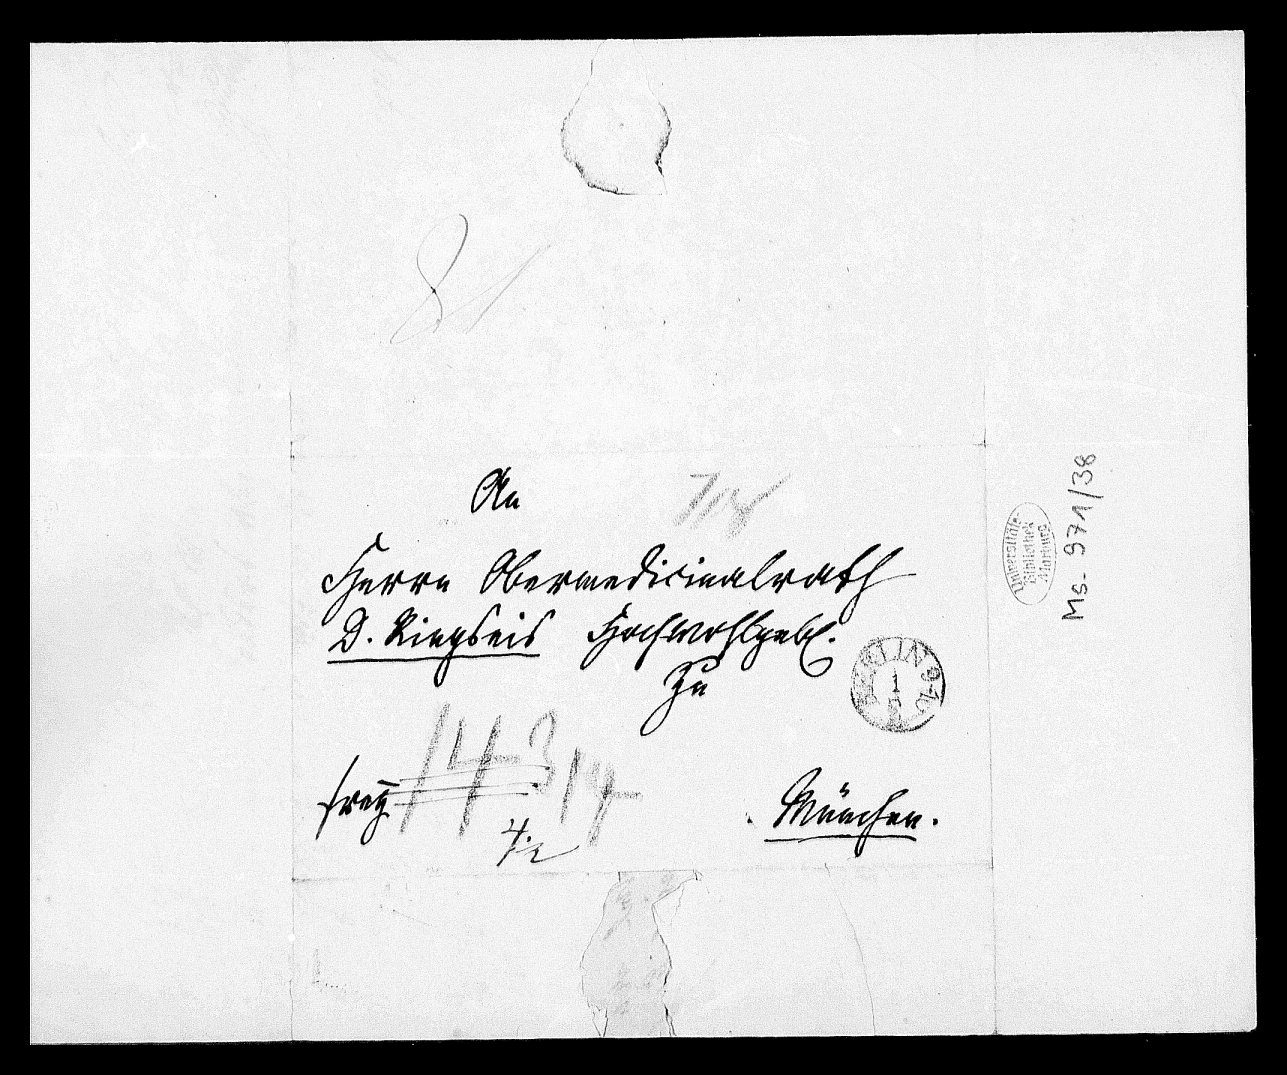 An
Herrn Obermedicinalrath
D. Ringseis Hochwohlgeb.
Zu
frey
München.
BERLIN
9-10
1
5
Universitäts-
Bibliothek
Marburg
Ms. 971/38